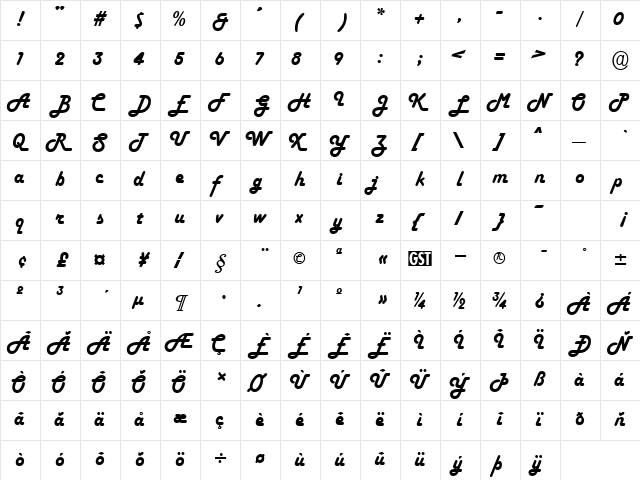 ! " # $ % & ' ( ) * + , - . / 0
1 2 3 4 5 6 7 8 9 : ; < = > ? @
A B C D E F G H I J K L M N O P
Q R S T U V W X Y Z [ \ ] ^ _
a b c d e f g h i j k l m n o p
q r s t u v w x y z { | } ¯ ¡
¢ £ ¤ ¥ ¦ § ¨ © ª « GST — ® ¯ ° ±
² ³ ´ µ ¶ · . ¹ º » ¼ ½ ¾ ¿ À Á
Â Ã Ä Å Æ Ç È É Ê Ë Ì Í Î Ï Ð Ñ
Ò Ó Ô Õ Ö × Ø Ù Ú Û Ü Ý Þ ß à á
â ã ä å æ ç è é ê ë ì í î ï ð ñ
ò ó ô õ ö ÷ ø ù ú û ü ý þ ÿ